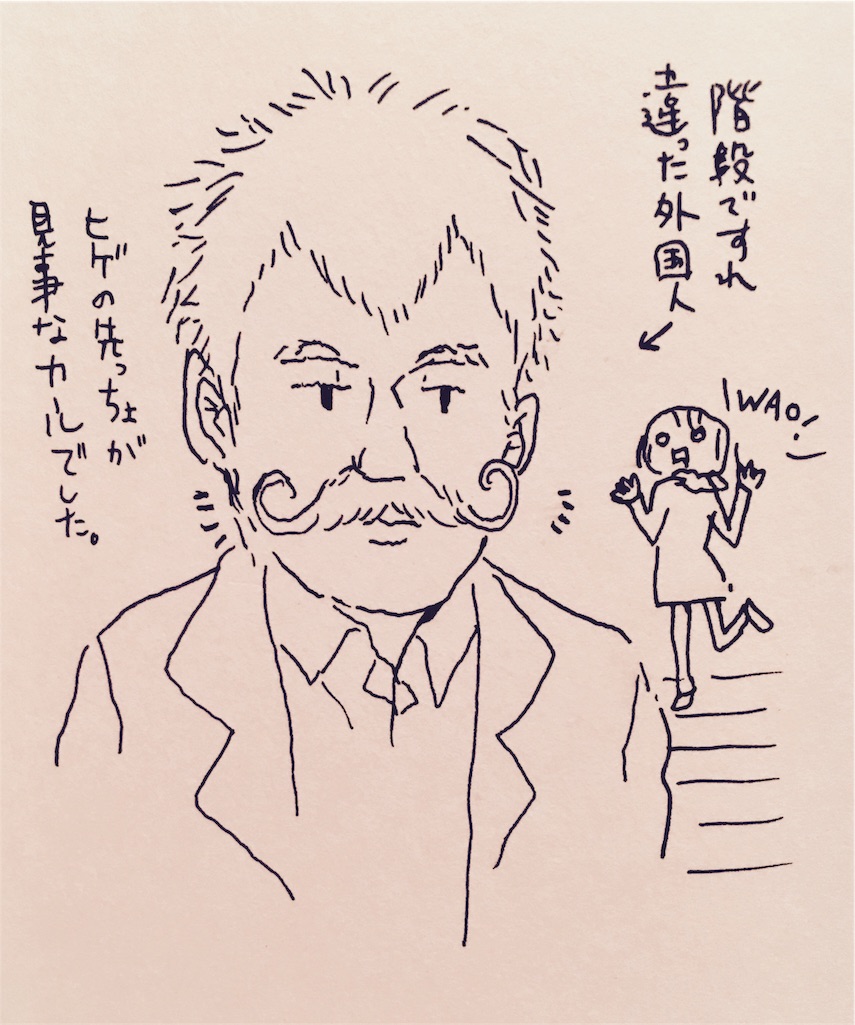 階段ですれ
違った外国人
WAO!
ヒゲの先っちょが
見事なカールでした。